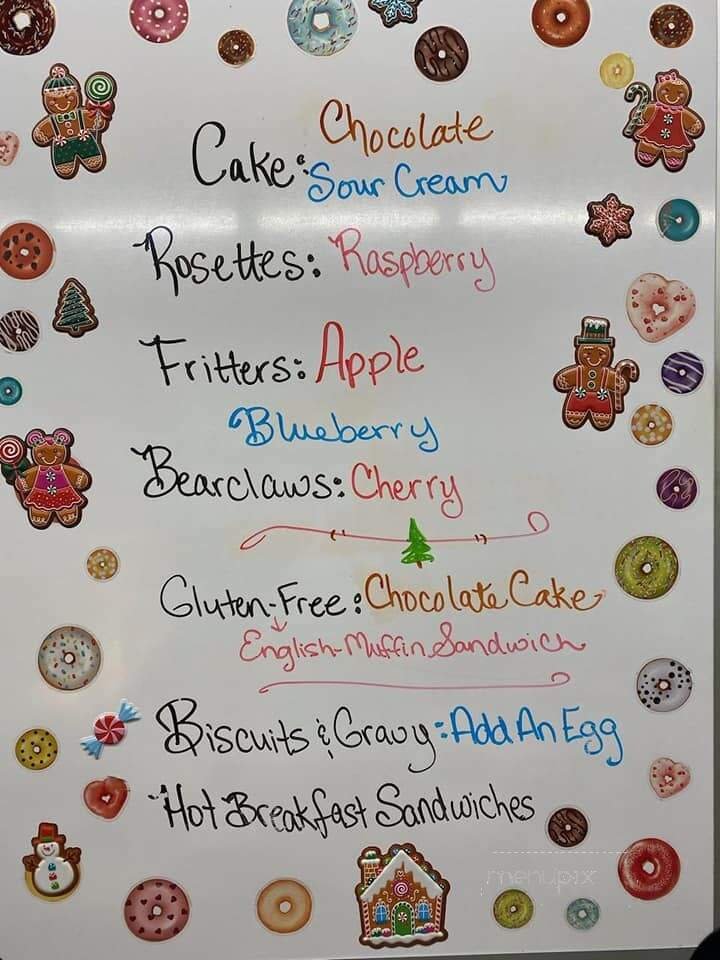 Chocolate
Cake: Sour Cream
Rosettes: Raspberry
Fritters: Apple
Blueberry
Bearclaws: Cherry
Gluten-Free: Chocolate Cake
English-Muffin Sandwich
Biscuits & Gravy: Add An Egg
Hot Breakfast Sandwiches
menupix